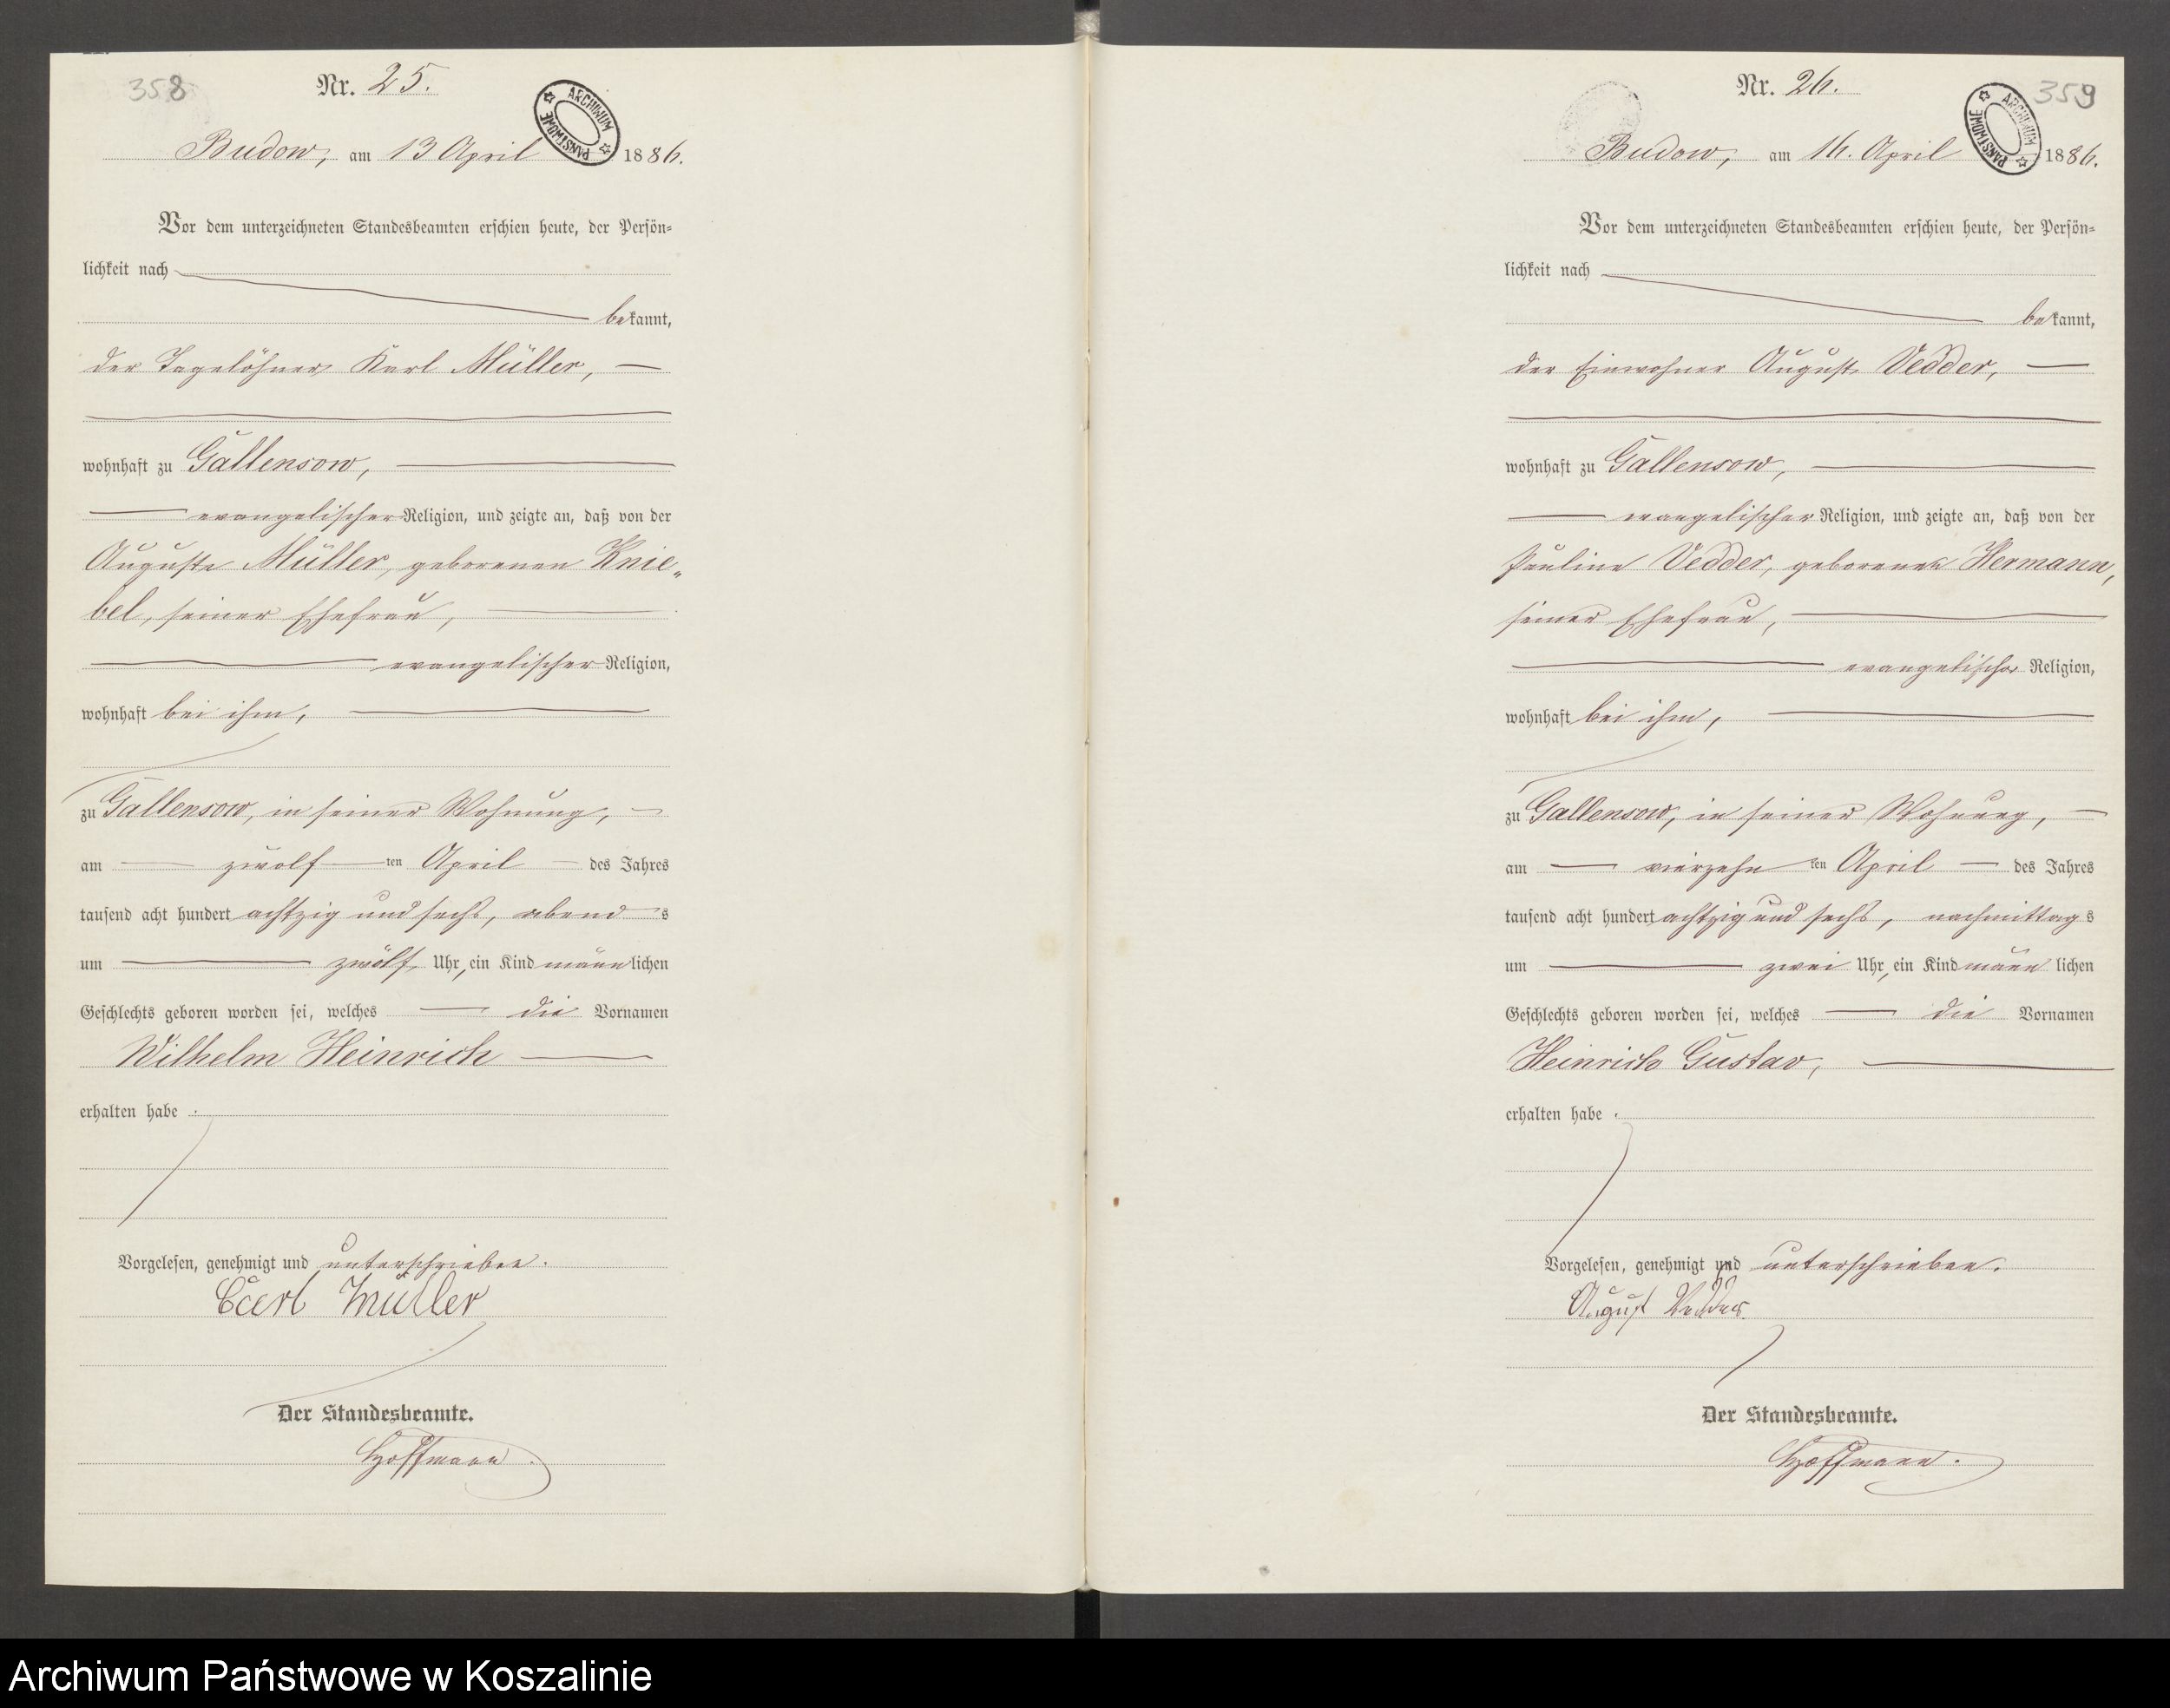 358
Nr. 25.
ARCHIWUM PAŃSTWOWE
Budow, am 13 April 1886.
Vor dem unterzeichneten Standesbeamten erschien heute, der Persön-
lichkeit nach
bekannt,
der Tagelöhner Karl Müller,
wohnhaft zu Gallensow,
evangelischer Religion, und zeigte an, daß von der
Auguste Müller, geborenen Knie-
bel, seiner Ehefrau,
evangelischer Religion,
wohnhaft bei ihm,
zu Gallensow, in seiner Wohnung,
am zwölf ten April des Jahres
tausend acht hundert achtzig und sechs, abend s
um zwölf Uhr, ein Kind männlichen
Geschlechts geboren worden sei, welches die Vornamen
Wilhelm Heinrich
erhalten habe.
Vorgelesen, genehmigt und unterschrieben.
Carl Müller
Der Standesbeamte.
Hoffmann.
359
Nr. 26.
ARCHIWUM PAŃSTWOWE
Budow, am 16. April 1886.
Vor dem unterzeichneten Standesbeamten erschien heute, der Persön-
lichkeit nach
bekannt,
der Einwohner August Vedder,
wohnhaft zu Gallensow,
evangelischer Religion, und zeigte an, daß von der
Pauline Vedder, geborenen Hermann,
seiner Ehefrau,
evangelischer Religion,
wohnhaft bei ihm,
zu Gallensow, in seiner Wohnung,
am vierzehn ten April des Jahres
tausend acht hundert achtzig und sechs, nachmittag s
um zwei Uhr, ein Kind männlichen
Geschlechts geboren worden sei, welches die Vornamen
Heinrich Gustav,
erhalten habe.
Vorgelesen, genehmigt und unterschrieben.
August Vedder
Der Standesbeamte.
Hoffmann.
Archiwum Państwowe w Koszalinie